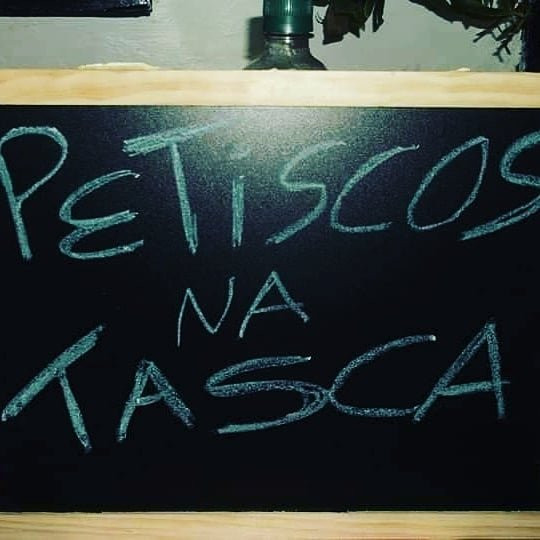 PETiSCOS
NA
TASCA